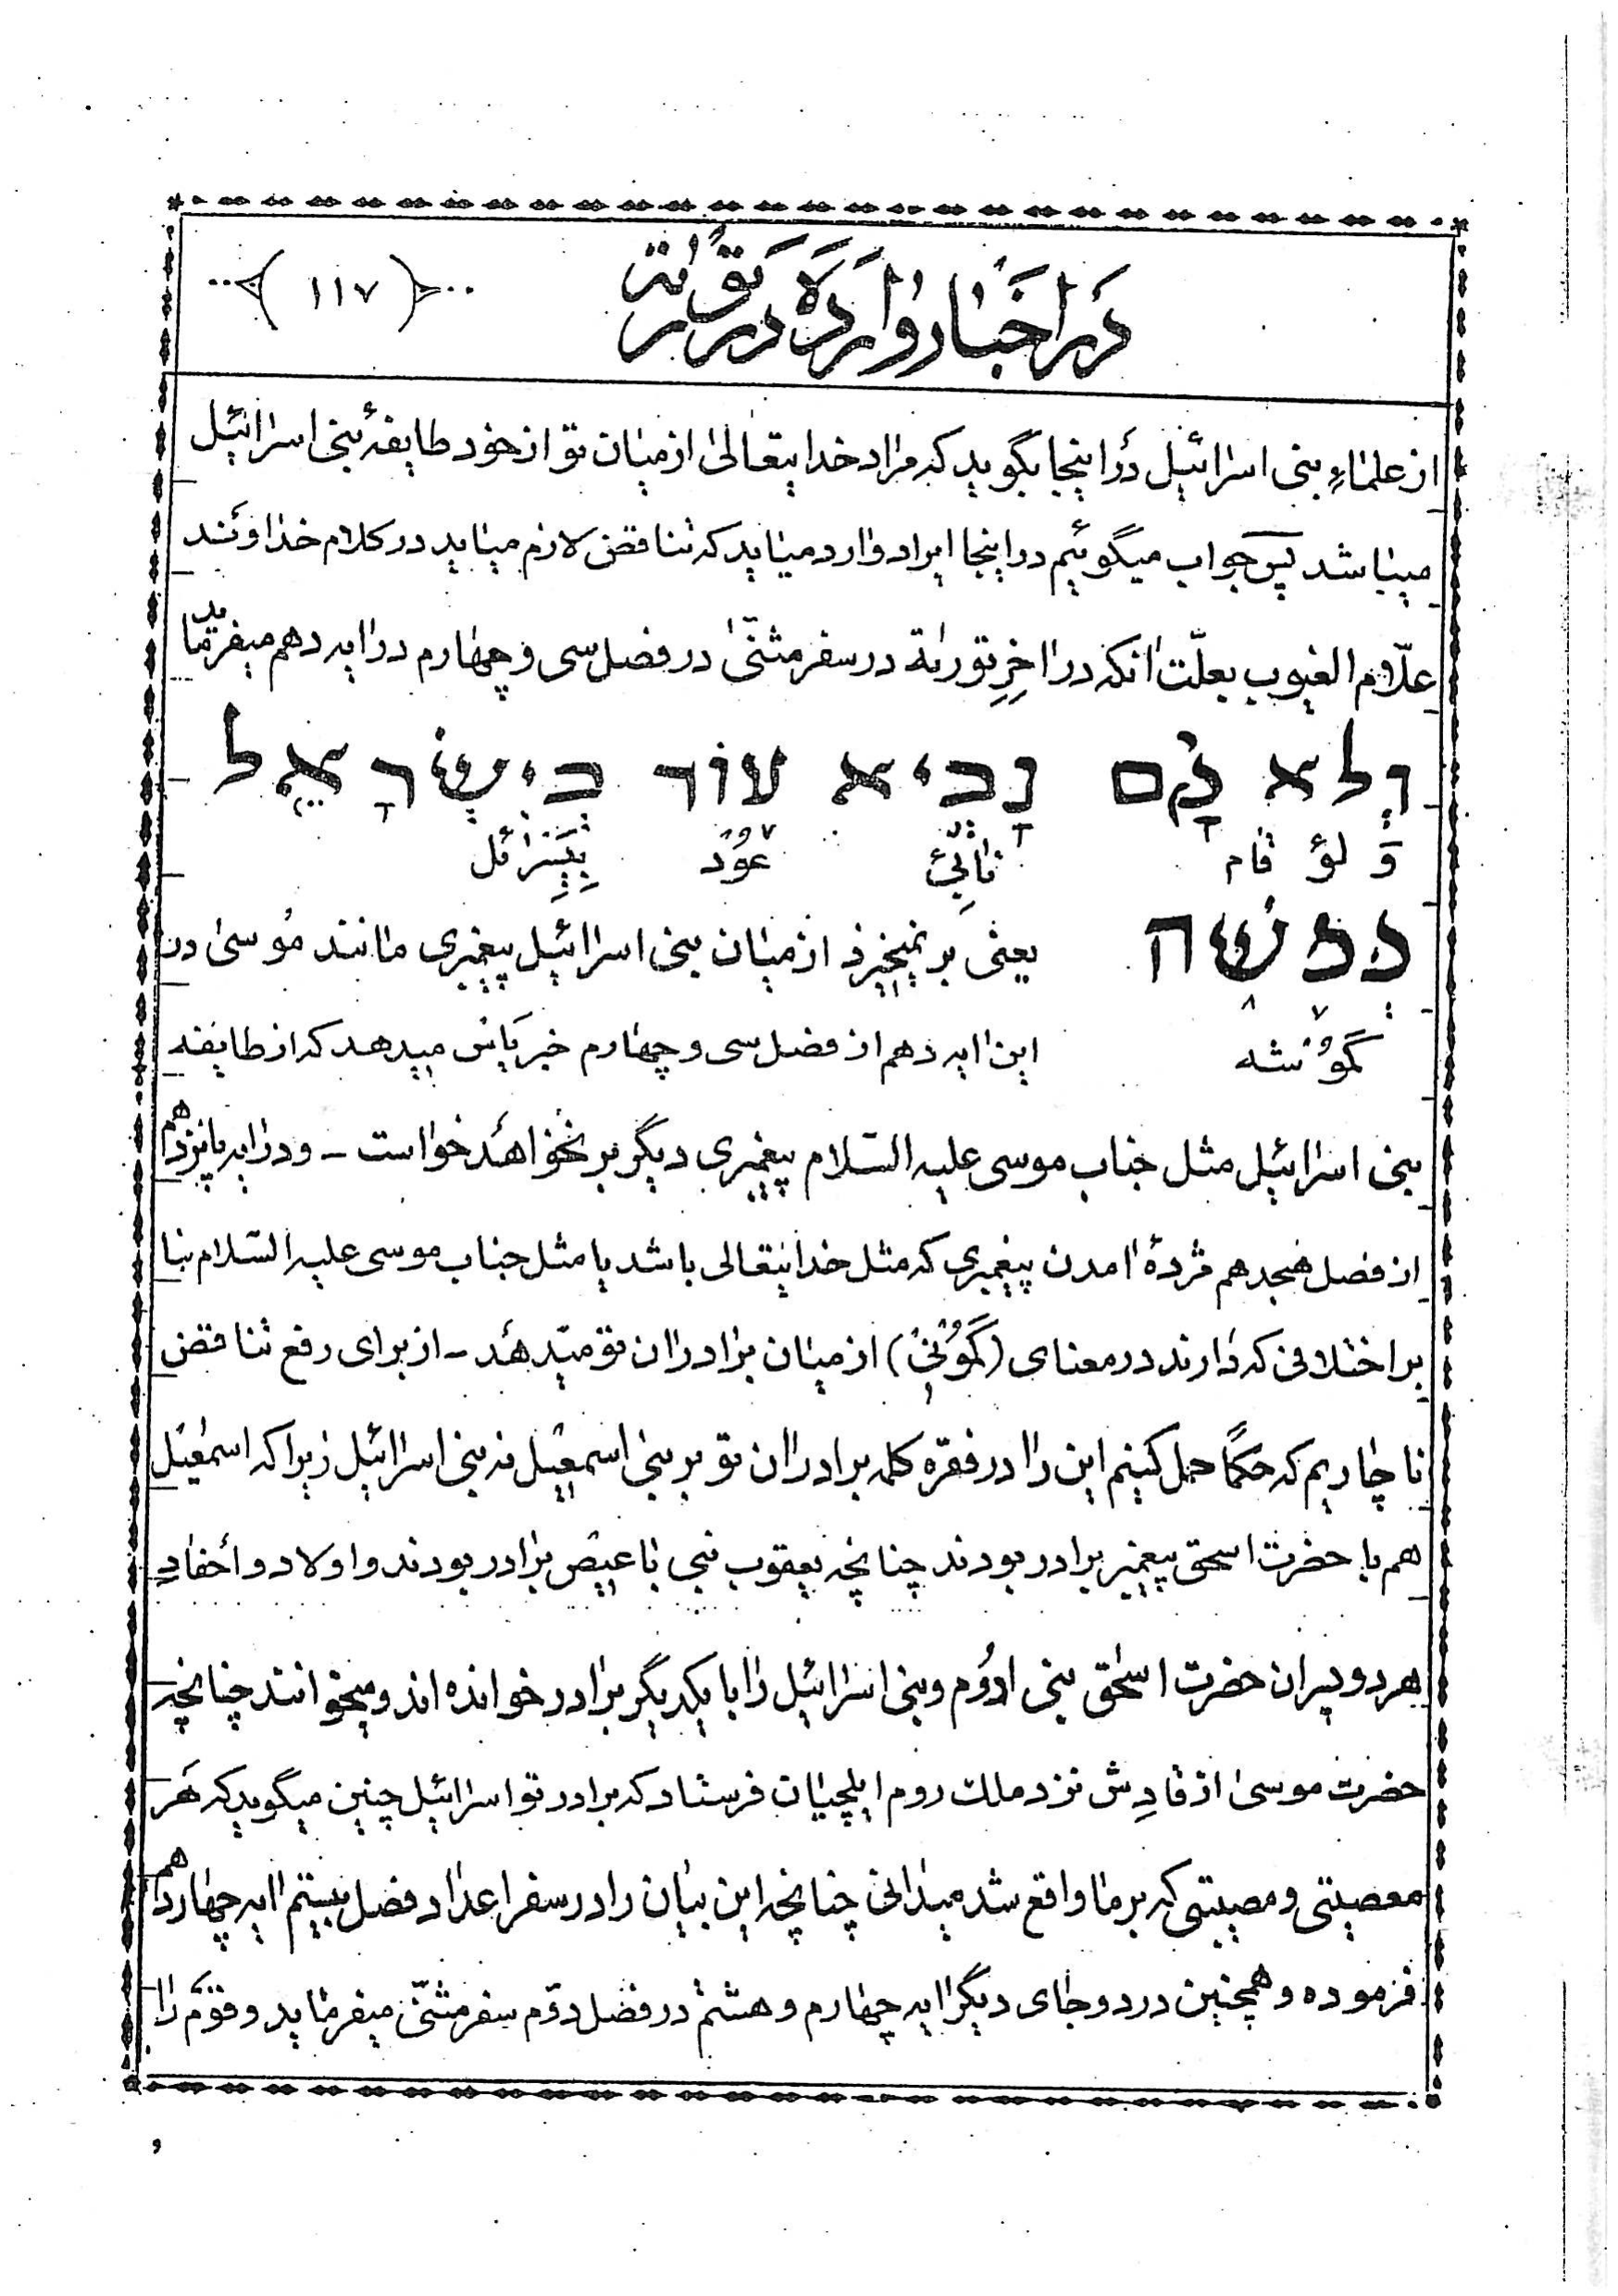 در اخبار وارده در توریة
(۱۱۷)
از علماء بنی اسرائیل در اینجا بگوید که مراد خدایتعالی از میان تو از خود طایفهٔ بنی اسرائیل
میباشد پس جواب میگوئیم در اینجا ایراد وارد میاید که تناقض لازم میاید در کلام خداوند
علّام الغیوب بعلّت انکه در اخرِ توریة در سفر مثنّی در فصل سی و چهارم در ایه دهم میفرماید
וְלא קָם נָבִיא עוֹד בְיִשְׂרָאֵל
وَ لؤ قام نابیئ عوُد بیِسرائل
כְמֹשֶׁה یعنی بر نمیخیزد از میان بنی اسرائیل پیغمبری مانند مُوسی در
کموُشه این ایه دهم از فصل سی و چهارم خبر یَاس میدهد که از طایفه
بنی اسرائیل مثل جناب موسی علیه السّلام پیغمبری دیگر بر نخواهد خواست – و در ایه پانزدهم
از فصل هیجدهم مژدهٔ امدن پیغمبری که مثل خدایتعالی باشد یا مثل جناب موسی علیه السّلام بنا
بر اختلافی که دارند در معنای (کموُنی) از میان برادران تو میدهد – از برای رفع تناقض
ناچاریم که حکمًا حمل کنیم این را در فقره کلمه برادران تو بر بنی اسمعیل نه بنی اسرائیل زیرا که اسمعیل
هم با حضرت اسحق پیغمبر برادر بودند چنانچه یعقوب نبی با عیص برادر بودند و اولاد و أحفادِ
هر دو پسران حضرت اسحق بنی ادوُم و بنی اسرائیل را با یکدیگر برادر خوانده اند و میخوانند چنانچه
حضرت موسی از قادِش نزد ملک روم ایلچیان فرستاد که برادر تو اسرائیل چنین میگوید که هَر
معصیتی و مصیبتی که بر ما واقع شد میدانی چنانچه این بیان را در سفر اعداد فصل بیستم ایه چهاردهم
فرموده و همچنین در دو جای دیگر ایه چهارم و هشتم در فصل دوّم سفر مثنّی میفرماید و قوم را